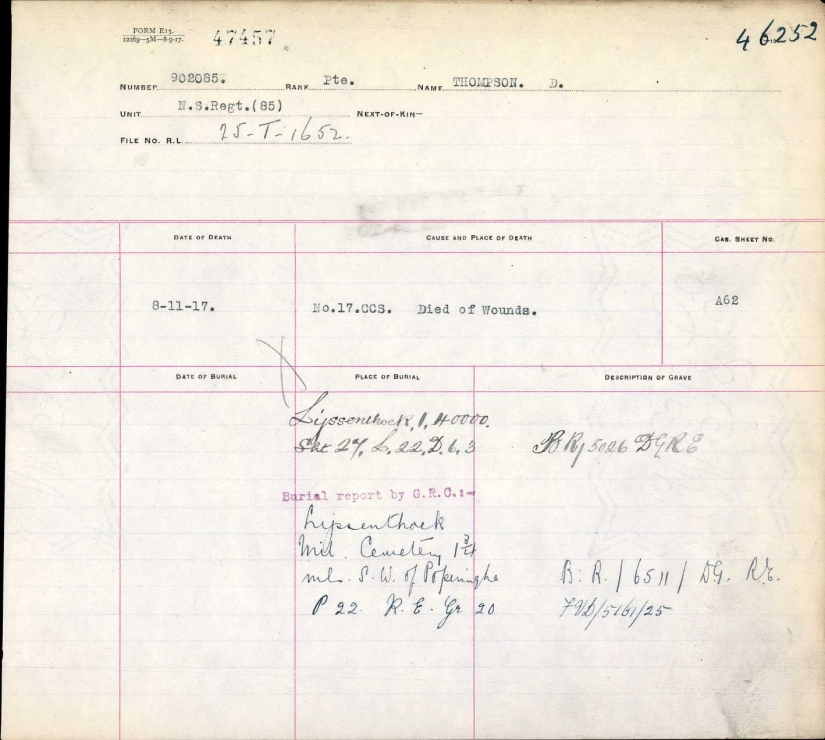 FORM E13.
12269—5M—8-9-17.
47457
46252
NUMBER 902085. RANK Pte. NAME THOMPSON. D.
UNIT N.S.Regt.(85) NEXT-OF-KIN—
FILE NO. R.L. 25-T-1652.
DATE OF DEATH CAUSE AND PLACE OF DEATH CAS. SHEET NO.
8-11-17. No.17.CCS. Died of Wounds. A62
DATE OF BURIAL PLACE OF BURIAL DESCRIPTION OF GRAVE
Lijssenthoek, 1, 40000.
Sht 27, L, 22, D. 6, 3 B R/ 5026 DGRE
Burial report by G.R.C.:-
Lijssenthoek
Mil. Cemetery 1 3/4
mls. S. W. of Poperinghe B. R. / 6511 / DG. R.E.
P 22. R. E. Gr 20 /5161/25